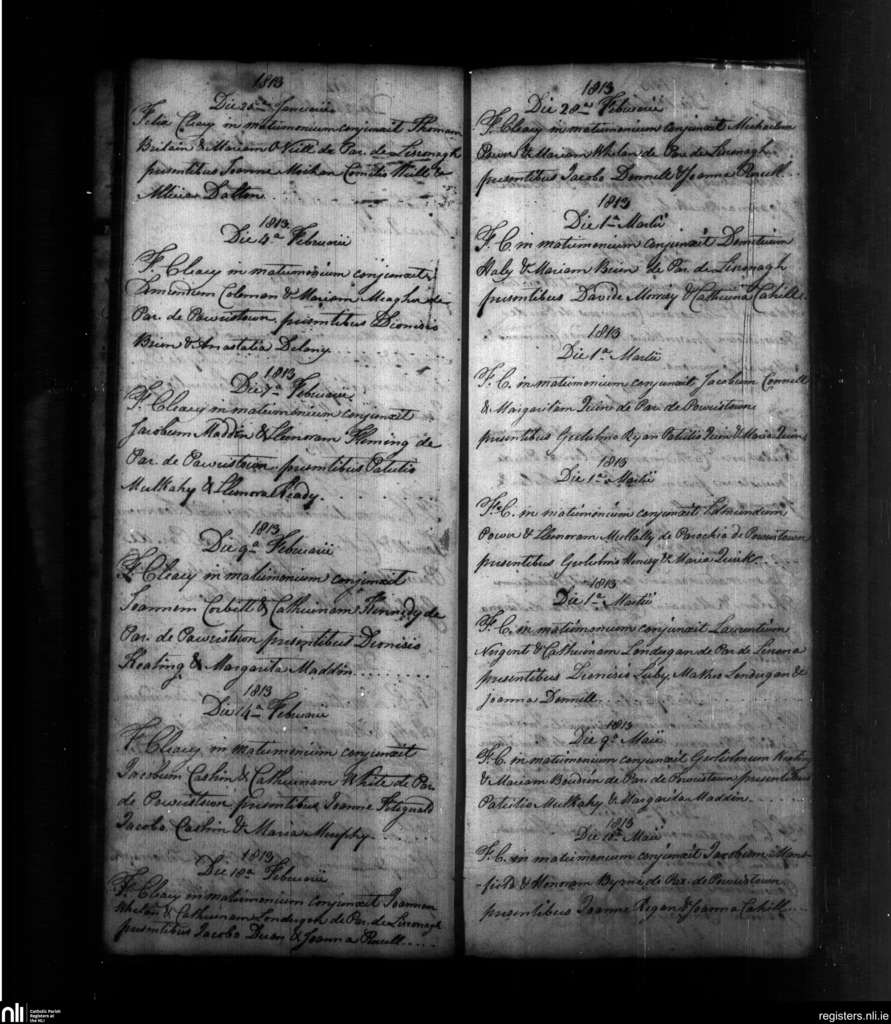 1813
Die 25ta Januarii
Felix Cleary in matrimonium conjunxit Thomam
Britain & Mariam O Neill de Par. de Lisronagh
presentibus Joanne Meehan
Dalton
1813
Die 4a Februarii
F. Cleary in matrimonium conjunxit
Edmundum Coleman & Mariam Meagher de
Par. de Powristown, presentibus Dionisio
Brien & Anastatia Delany
1813
Die 7a Februarii
F. Cleary in matrimonium conjunxit
Jacobum Madden & Elenoram Fleming de
Par. de Powristown presentibus Patritio
Mulkahy & Elenora
1813
Die 9a Februarii
F. Cleary in matrimonium conjunxit
Joannem Corbett & Catherinam Kennedy de
Par. de Powristown presentibus Dionisio
Keating & Margarita Madden
1813
Die 14a Februarii
F. Cleary in matrimonium conjunxit
Jacobum Cashin & Catherinam White de Par.
de Powristown presentibus Joanne Fitzgerald
Jacobo Cashin & Maria Murphy
1813
Die 18a Februarii
F. Cleary in matrimonium conjunxit Joannem
Whelan & Catherinam Londergan de Par. de Lisronagh
presentibus Jacobo & Joanna Purcell
1813
Die 28va Februarii
F. Cleary in matrimonium conjunxit Michaelem
Power & Mariam Whelan de Par. de Lisronagh
presentibus Jacobo Donnell & Joanna Purcell
1813
Die 1ma Martii
F. C. in matrimonium conjunxit
Haly & Mariam Brien de Par. de Lisronagh
presentibus Davide & Catherina Cahill
1813
Die 1ma Martii
F. C. in matrimonium conjunxit Jacobum Connell
& Margaritam Quin de Par. de Powristown
presentibus Gulielmo Ryan Patritio Quin & Maria Quin
1813
Die 1ma Martii
F. C. in matrimonium conjunxit Edmundum
Power & Elenoram de Parochia de Powristown
presentibus Gulielmo & Maria Quirk
1813
Die 1ma Martii
F. C. in matrimonium conjunxit Laurentium
Nugent & Catherinam Londergan de Par. de Lisrona
presentibus Dionisio Luby, Matheo Londergan &
Joanna Donnell
1813
Die 9a Maii
F. C. in matrimonium conjunxit Gulielmum Keating
& Mariam de Par. de Powristown presentibus
Patritio Mulkahy & Margarita Madden
1813
Die Maii
F. C. in matrimonium conjunxit Jacobum Mans-
-field & Honoram Byrne de Par. de Powristown
presentibus Joanne Regan & Joanna Cahill
nli
Catholic Parish
Registers at
the NLI
registers.nli.ie